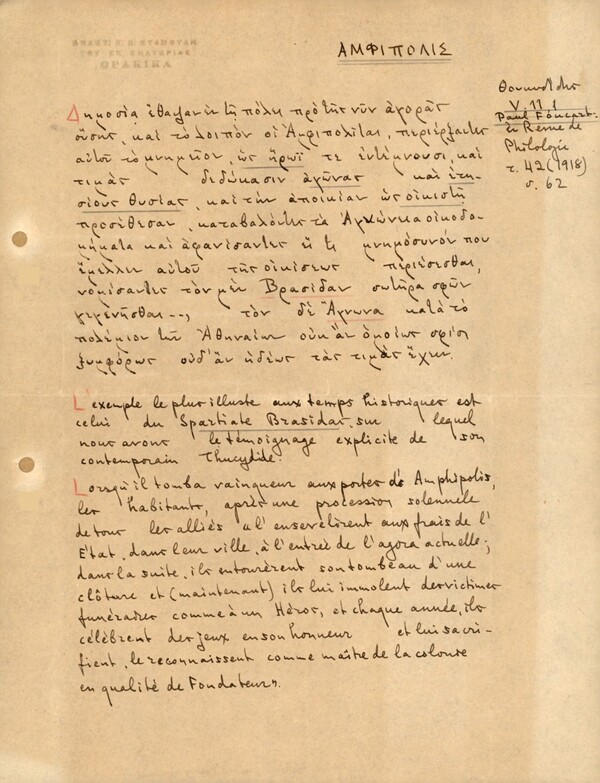 ΑΜΦΙΠΟΛΙΣ
Θουκυδίδης
V. 11.1
Paul Foucart.
ἐν Revue de
Philologie
τ. 42 (1918)
σ. 62
Δημοσίᾳ ἔθαψαν ἐν τῇ πόλει πρὸ τῆς νῦν ἀγορᾶς
οὔσης, καὶ τὸ λοιπὸν οἱ Ἀμφιπολῖται, περιέρξαντες
αὐτοῦ τὸ μνημεῖον, ὡς ἥρωΐ τε ἐντέμνουσι, καὶ
τιμὰς δεδώκασιν ἀγῶνας καὶ ἐτη-
σίους θυσίας, καὶ τὴν ἀποικίαν ὡς οἰκιστῇ
προσέθεσαν, καταβαλόντες τὰ Ἁγνώνεια οἰκοδο-
μήματα καὶ ἀφανίσαντες εἴ τι μνημόσυνόν που
ἔμελλεν αὐτοῦ τῆς οἰκίσεως περιέσεσθαι,
νομίσαντες τὸν μὲν Βρασίδαν σωτῆρα σφῶν
γεγενῆσθαι --, τὸν δὲ Ἅγνωνα κατὰ τὸ
πολέμιον τῶν Ἀθηναίων οὐκ ἂν ὁμοίως σφίσι
ξυμφόρως οὐδ' ἂν ἡδέως τὰς τιμὰς ἔχειν.
L'exemple le plus illuste aux temps historiques est
celui du Spartiate Brasidas, sur lequel
nous avons le témoignage explicite de son
contemporain Thucydide.
Lorsqu'il tomba vainqueur aux portes d'Amphipolis,
les habitants, après une procession solennelle
de tous les alliés «l'ensevelirent aux frais de l'
État, dans leur ville, à l'entrée de l'agora actuelle;
dans la suite, ils entourèrent son tombeau d'une
clôture et (maintenant) ils lui immolent des victimes
funéraires comme à un Héros, et chaque année, ils
célèbrent des jeux en son honneur et lui sacri-
fient, le reconnaissent comme maître de la colonie
en qualité de Fondateur».